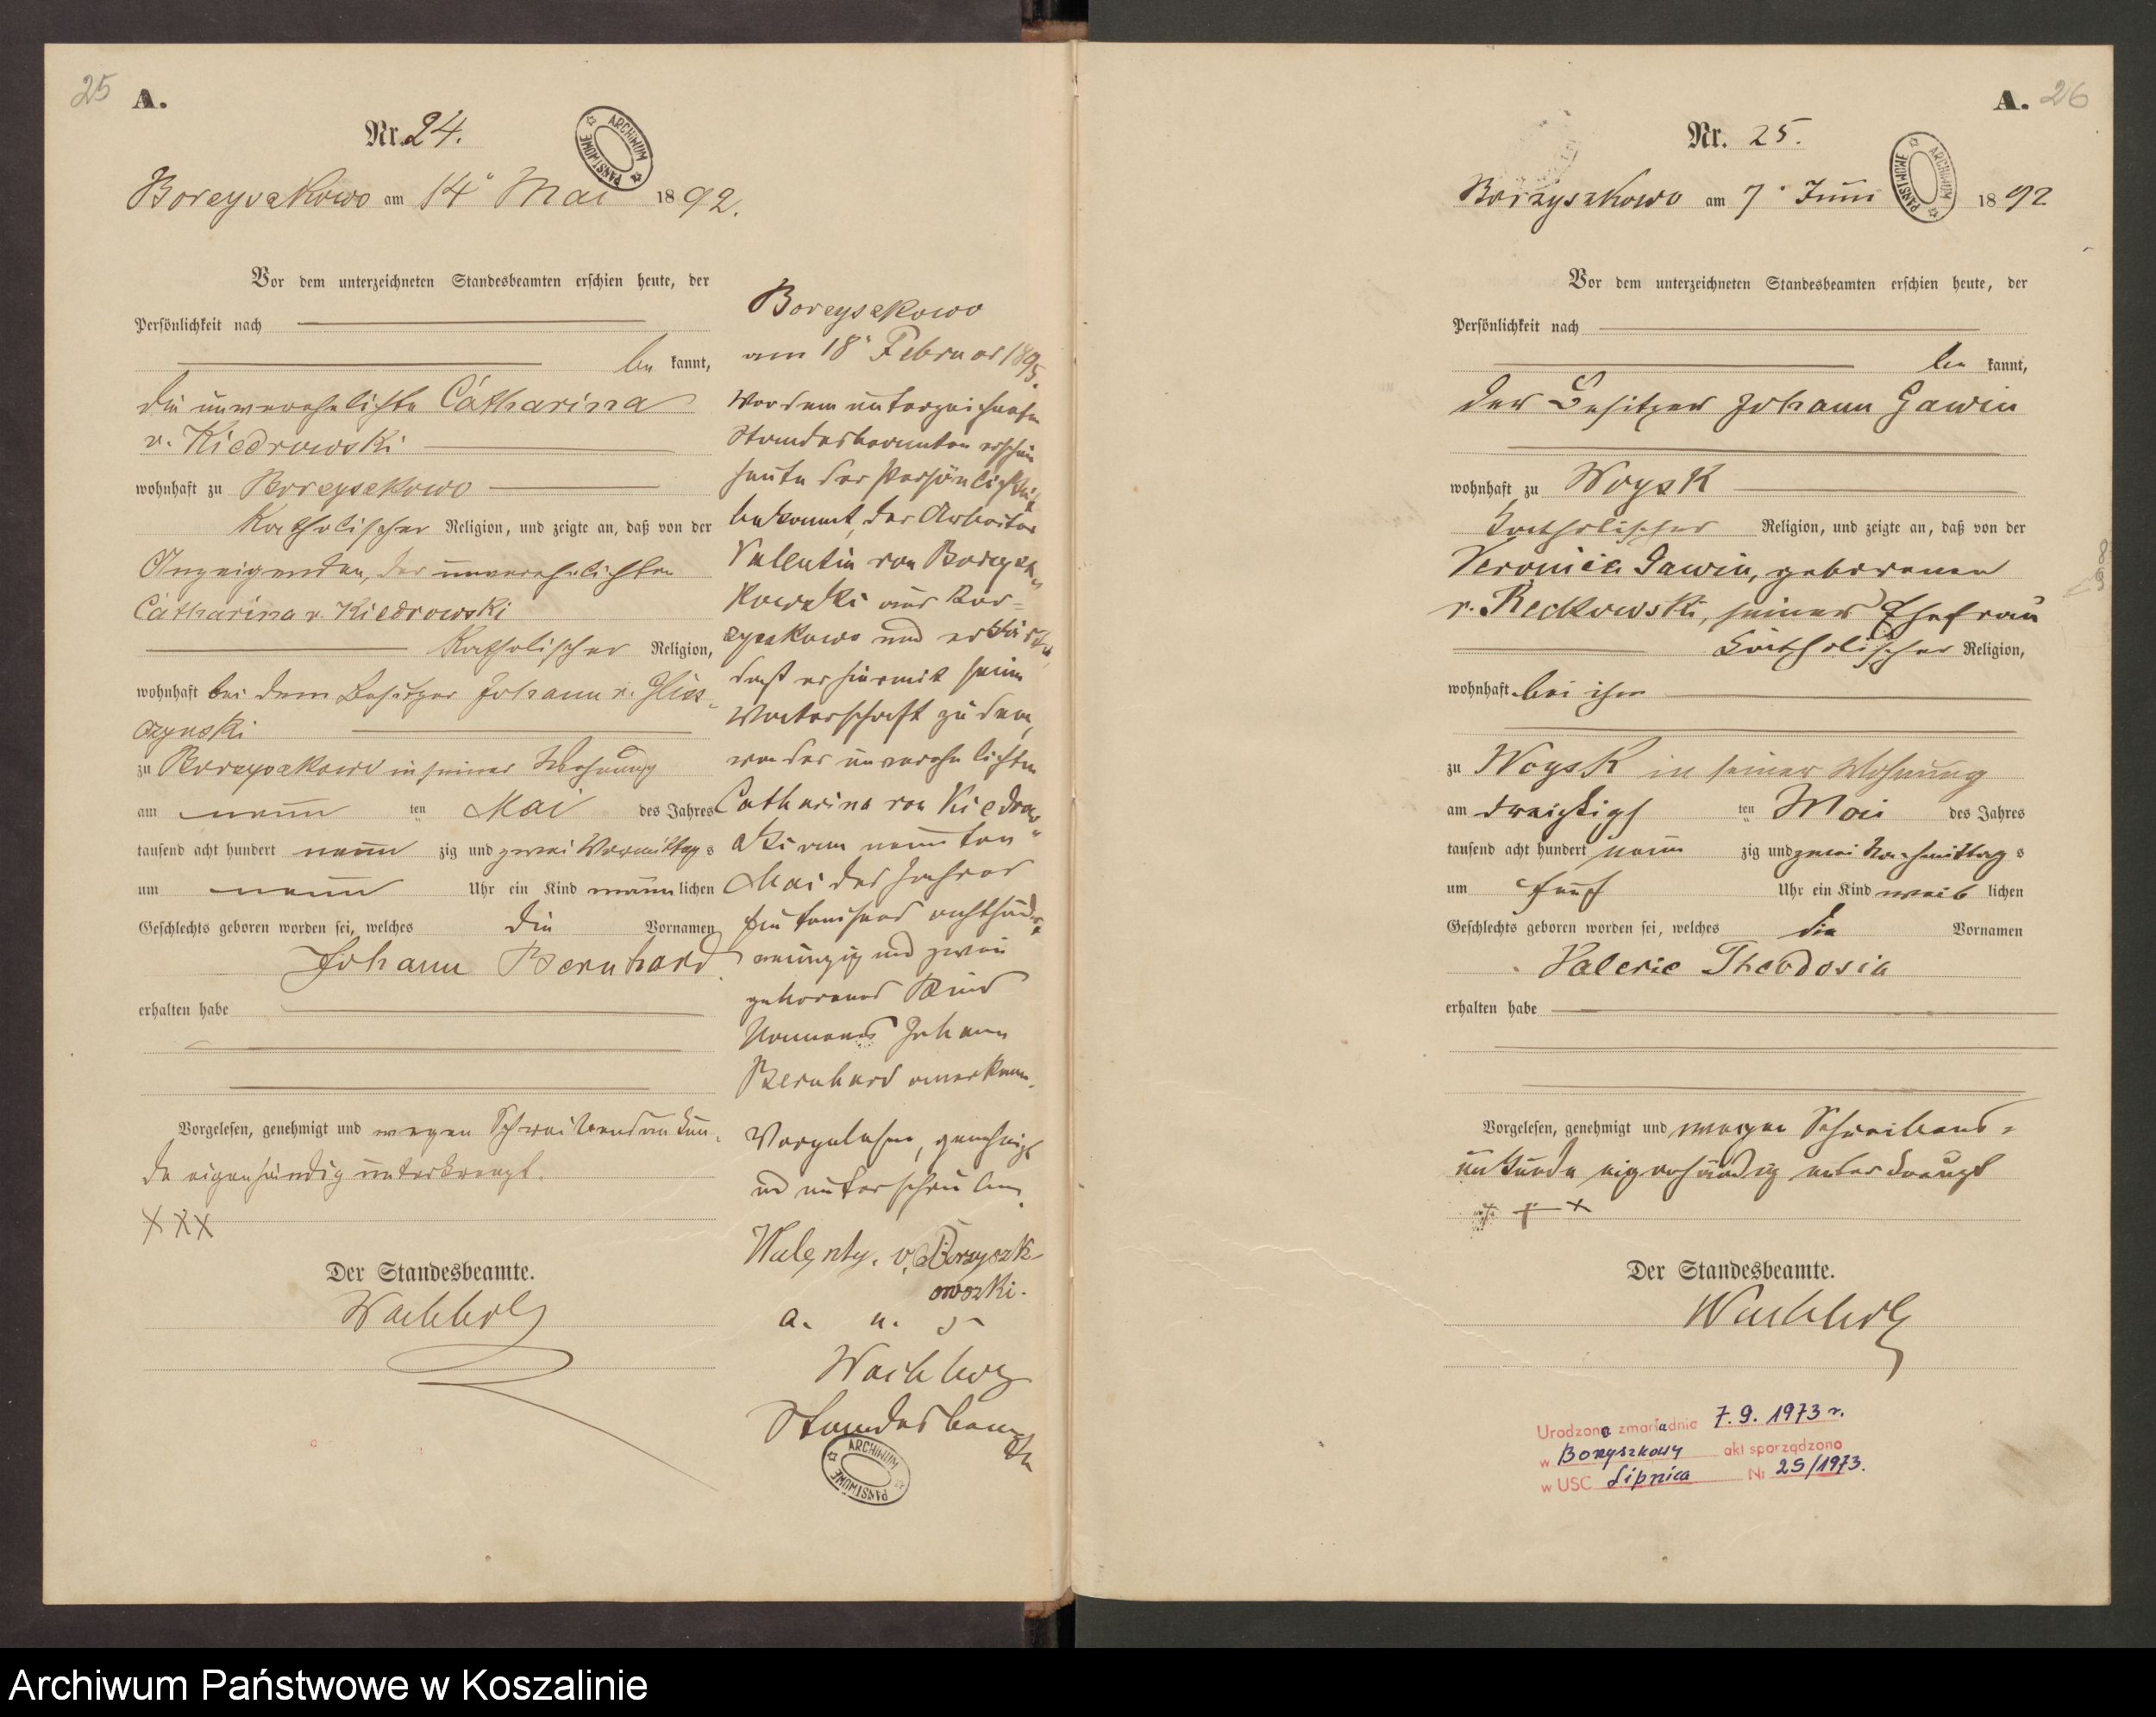 25
A.
Nr. 24.
ARCHIWUM PAŃSTWOWE
Borzyszkowo am 14" Mai 1892.
Vor dem unterzeichneten Standesbeamten erschien heute, der
Persönlichkeit nach
be kannt,
die unverehelichte Catharina
v. Kiedrowski
wohnhaft zu Borzyszkowo
katholischer Religion, und zeigte an, daß von der
Anzeigenden, der unverehelichten
Catharina v. Kiedrowski
katholischer Religion,
wohnhaft bei dem Besitzer Johann v.
czynski
zu Borzyszkowo in seiner Wohnung
am neun ten Mai des Jahres
tausend acht hundert neun zig und zwei Vormittag s
um neun Uhr ein Kind männ lichen
Geschlechts geboren worden sei, welches die Vornamen
Johann Bernhard
erhalten habe
Vorgelesen, genehmigt und wegen Schreibensunkun-
de eigenhändig unterkreuzt.
XXX
Der Standesbeamte.
Wachholz
Borzyszkowo
am 18" Februar 1895.
Vor dem unterzeichneten
Standesbeamten erschien
heute der Persönlichkeit
bekannt, der Arbeiter
Valentin von Borzysz-
kowski aus Bor-
zyszkowo und erklärte,
daß er hiermit seine
Vaterschaft zu dem,
von der unverehelichten
Catharina von Kiedrow-
ski am neunten
Mai des Jahres
ein tausend achthundert
neunzig und zwei
geborenen Kind
Namens Johann
Bernhard anerkenne.
Vorgelesen, genehmigt
und unterschrieben
Walenty. v. Borzyszk-
owszki.
a. u. s
Wachholz
Standesbeamte
ARCHIWUM PAŃSTWOWE
A. 26
Nr. 25.
ARCHIWUM PAŃSTWOWE
Borzyszkowo am 7" Juni 1892
Vor dem unterzeichneten Standesbeamten erschien heute, der
Persönlichkeit nach
be kannt,
der Besitzer Johann Gawin
wohnhaft zu Woysk
katholischer Religion, und zeigte an, daß von der
Veronica Gawin, geborenen
v. Reckowski, seiner Ehefrau
katholischer Religion,
wohnhaft bei ihm
zu Woysk in seiner Wohnung
am dreißigs ten Mai des Jahres
tausend acht hundert neun zig und zwei Nachmittag s
um fünf Uhr ein Kind weib lichen
Geschlechts geboren worden sei, welches die Vornamen
Valerie Theodosia
erhalten habe
Vorgelesen, genehmigt und wegen Schreibens-
unkunde eigenhändig unterkreuzt
+ + x
Der Standesbeamte.
Wachholz
Urodzona zmarła dnia 7.9.1973 r.
w Borzyszkowy akt sporządzono
w USC Lipnica Nr 25/1973.
Archiwum Państwowe w Koszalinie